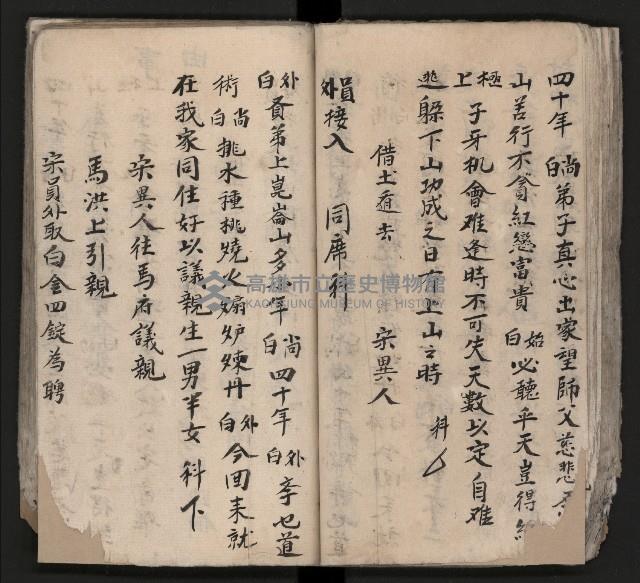 四十年 尚白 弟子真心出家望師父慈悲
山苦行不貪紅戀富貴 始白 必聽乎天豈得
極上 子牙机會難逢時不可失天數以定自難
逃躲下山功成之日有上山之時 科
借土遁去 宋異人
員外接入 同席科
外白 賢弟上崑崙山多少年 尚白 四十年 外白 李也道
術 尚白 挑水種桃燒火搧炉煉丹 外白 今回来就
在我家同住好以議親生一男半女 科下
宋異人往馬府議親
馬洪上引親
宋員外取白金四錠為聘
高雄市立歷史博物館
KAOHSIUNG MUSEUM OF HISTORY